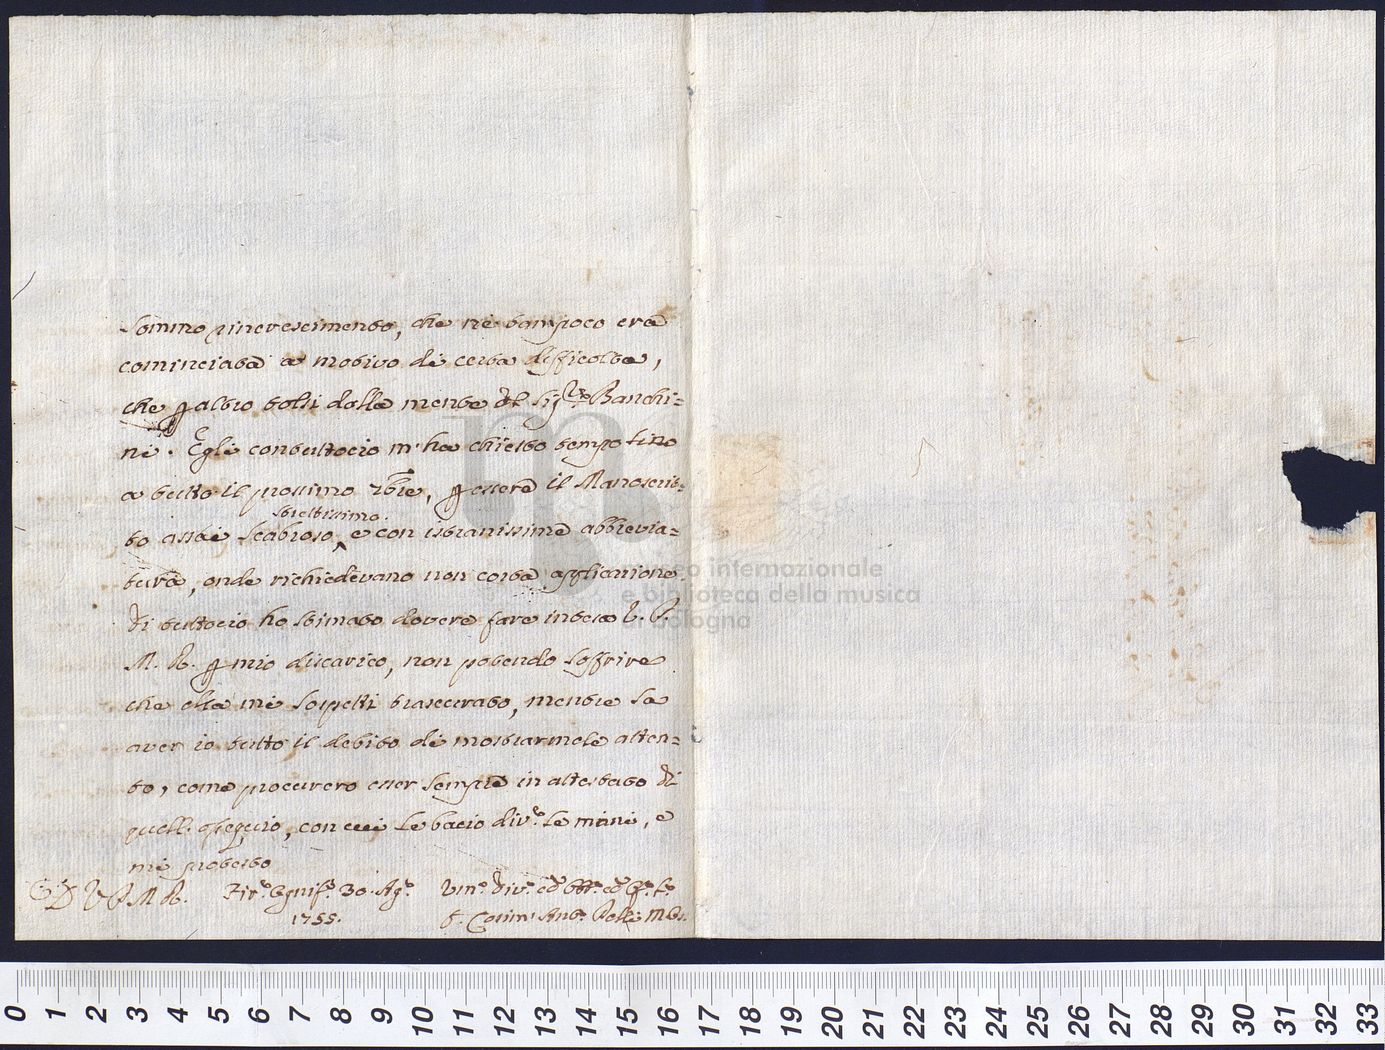 Sommo rincrescimento, che nè tampoco era
cominciata a motivo di certa difficolta,
che p altro tolsi dalla mente del Sig.re Banchi=
ni. Egli contuttocio m'ha chiesto tempo fino
a tutto il prossimo 7bre, p essere il Manoscrit=
strettissimo.
to assai scabroso, e con istranissime abbrevia=
ture, onde richiedevano non corta applicazione.
Di tuttocio ho stimato dovere fare intesa V. P.
M. R. p mio discarico, non potendo soffrire
che ella mi sospetti trascurato, mentre sa
aver io tutto il debito di mostrarmele atten=
to, come procurero esser sempre in attestato di
quell' ossequio, con cui le bacio div.e le mani, e
mi protesto
D V P M R. Fir.e Ognis.i 30. Ag.o
1755.
Um.o Div.o ed Obb.o ed
F. Cosim' Ant.o Pelli M Os.
museo internazionale
e biblioteca della musica
di bologna
0 1 2 3 4 5 6 7 8 9 10 11 12 13 14 15 16 17 18 19 20 21 22 23 24 25 26 27 28 29 30 31 32 33